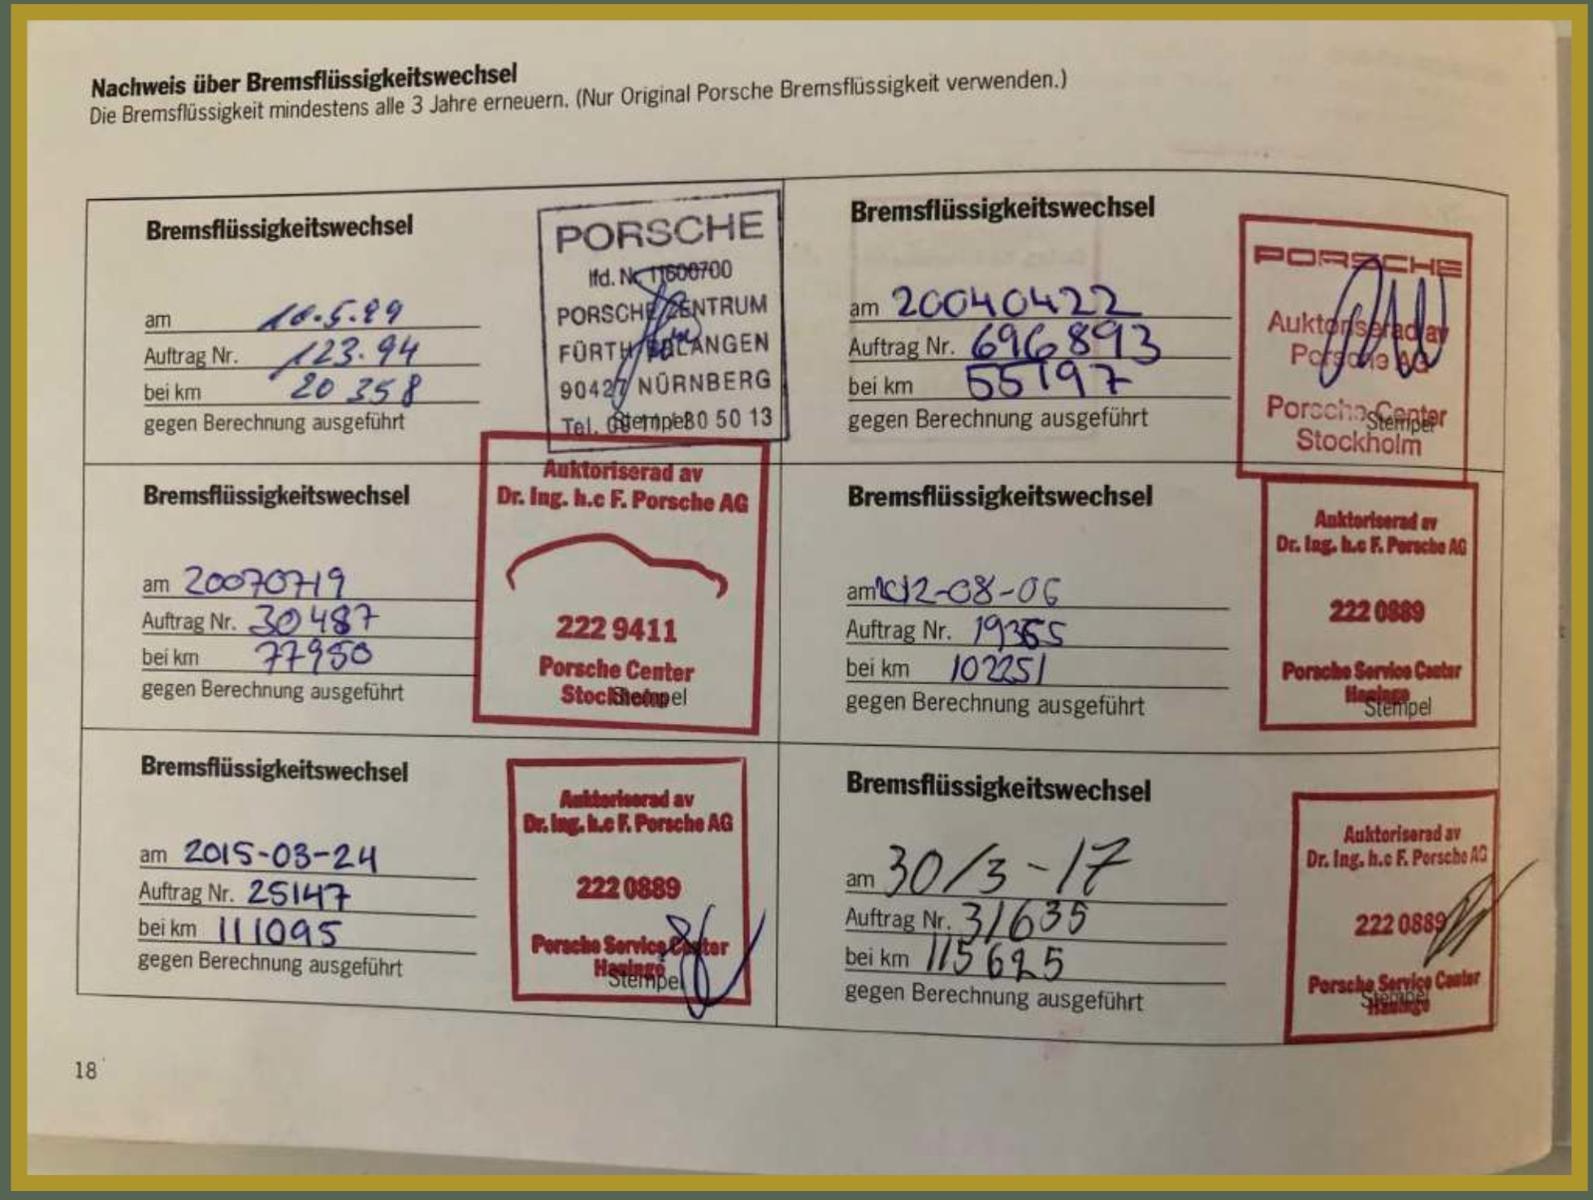 Nachweis über Bremsflüssigkeitswechsel
Die Bremsflüssigkeit mindestens alle 3 Jahre erneuern. (Nur Original Porsche Bremsflüssigkeit verwenden.)
Bremsflüssigkeitswechsel
am
Auftrag Nr. 123.94
bei km 20 358
gegen Berechnung ausgeführt
PORSCHE
lfd. Nr. 11600700
PORSCHE ZENTRUM
FÜRTH ERLANGEN
90427 NÜRNBERG
Tel. 80 50 13
Stempel
Bremsflüssigkeitswechsel
am 20040422
Auftrag Nr. 696893
bei km 55197
gegen Berechnung ausgeführt
PORSCHE
Auktoriserad av
Porsche AG
Porsche Center
Stockholm
Stempel
Bremsflüssigkeitswechsel
am 20070719
Auftrag Nr. 30487
bei km 77950
gegen Berechnung ausgeführt
Auktoriserad av
Dr. Ing. h.c F. Porsche AG
222 9411
Porsche Center
Stockholm
Stempel
Bremsflüssigkeitswechsel
am 2012-08-06
Auftrag Nr. 19365
bei km 102251
gegen Berechnung ausgeführt
Auktoriserad av
Dr. Ing. h.c F. Porsche AG
222 0889
Porsche Service Center
Haninge
Stempel
Bremsflüssigkeitswechsel
am 2015-03-24
Auftrag Nr. 25147
bei km 111095
gegen Berechnung ausgeführt
Auktoriserad av
Dr. Ing. h.c F. Porsche AG
222 0889
Porsche Service Center
Haninge
Stempel
Bremsflüssigkeitswechsel
am 30/3-17
Auftrag Nr. 31635
bei km 115625
gegen Berechnung ausgeführt
Auktoriserad av
Dr. Ing. h.c F. Porsche AG
222 0889
Porsche Service Center
Haninge
Stempel
18